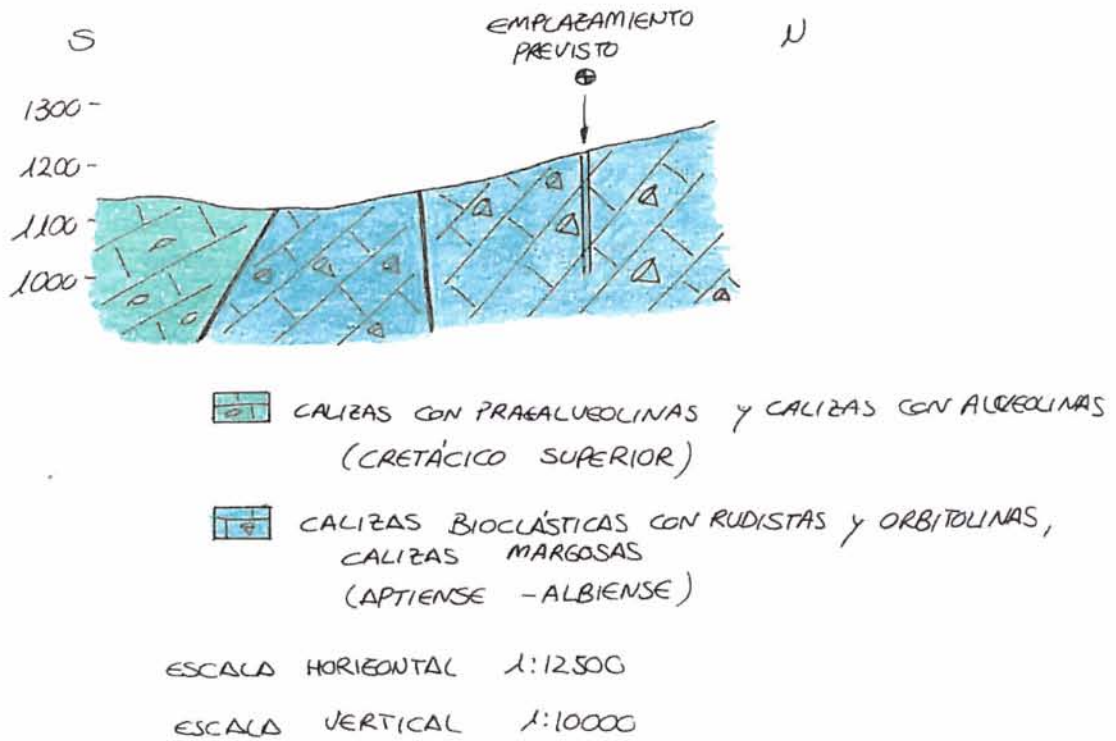 S
EMPLAZAMIENTO
PREVISTO
N
1300-
1200-
1100-
1000-
CALIZAS CON PRAEALVEOLINAS y CALIZAS CON ALVEOLINAS
(CRETÁCICO SUPERIOR)
CALIZAS BIOCLÁSTICAS CON RUDISTAS y ORBITOLINAS,
CALIZAS MARGOSAS
(APTIENSE - ALBIENSE)
ESCALA HORIZONTAL 1:12500
ESCALA VERTICAL 1:10000